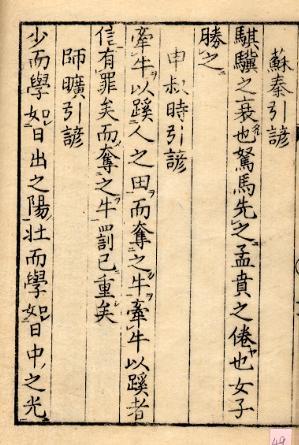 蘇秦引諺
騏驥之衰也駑馬先之孟賁之倦也女子
勝之
申叔時引諺
牽牛以蹊人之田而奪之牛牽牛以蹊者
信有罪矣而奪之牛罰已重矣
師曠引諺
少而學如日出之陽壯而學如日中之光
49